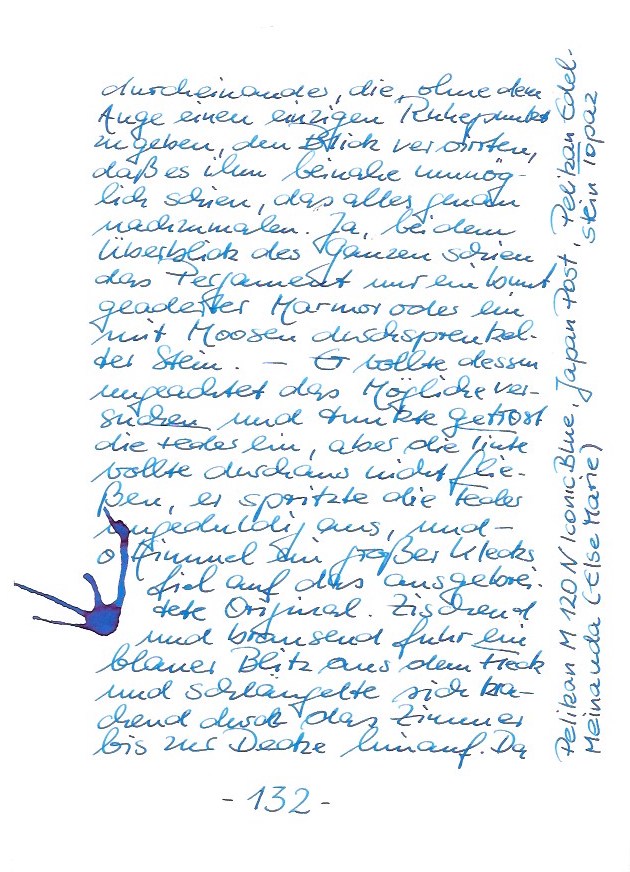 durcheinander, die, ohne dem
Auge einen einzigen Ruhepunkt
zu geben, den Blick verwirrten,
daß es ihm beinahe unmög-
lich schien, das alles genau
nachzumalen. Ja, bei dem
Überblick des Ganzen schien
das Pergament nur ein bunt
geaderter Marmor oder ein
mit Moosen durchsprenkel-
ter Stein. — Er wollte dessen
ungeachtet das Mögliche ver-
suchen und tunkte getrost
die Feder ein, aber die Tinte
wollte durchaus nicht flie-
ßen, er spritzte die Feder
ungeduldig aus, und —
o Himmel ein großer Klecks
fiel auf das ausgebrei-
tete Original. Zischend
und brausend fuhr ein
blauer Blitz aus dem Fleck
und schlängelte sich kra-
chend durch das Zimmer
bis zur Decke hinauf. Da
- 132 -
Pelikan M 120 N Iconic Blue, Japan Post, Pelikan Edel-
stein Topaz
Meinauda (Else Marie)